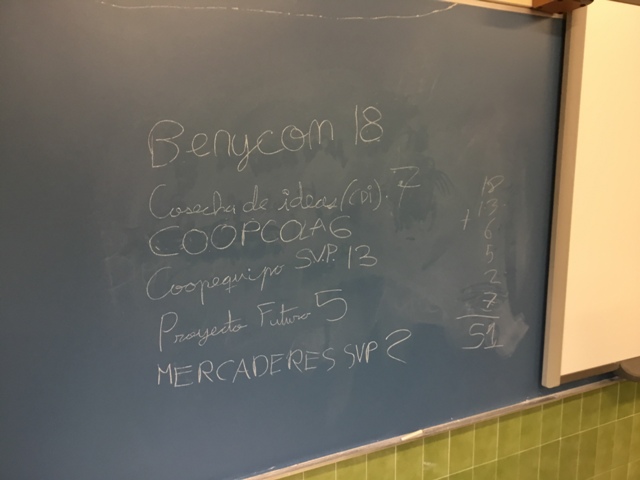 Benycom 18
Cosecha de ideas (CDI). 7
COOPCOLA 6
Coopequipo S.V.P. 13
Proyecto Futuro 5
MERCADERES SVP 2
18
13
+ 6
5
2
7
51